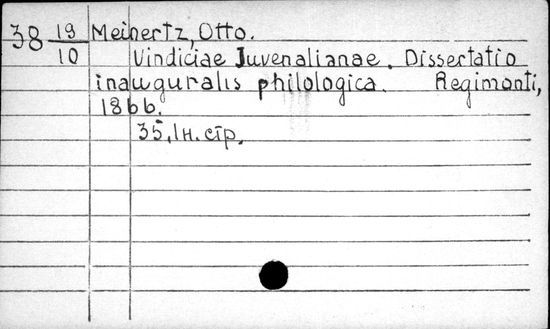 38 19/10 Meinertz, Otto.
Vindiciae Juvenalianae. Dissertatio
inauguralis philologica. Regimonti,
1866.
35, 1н. стр.